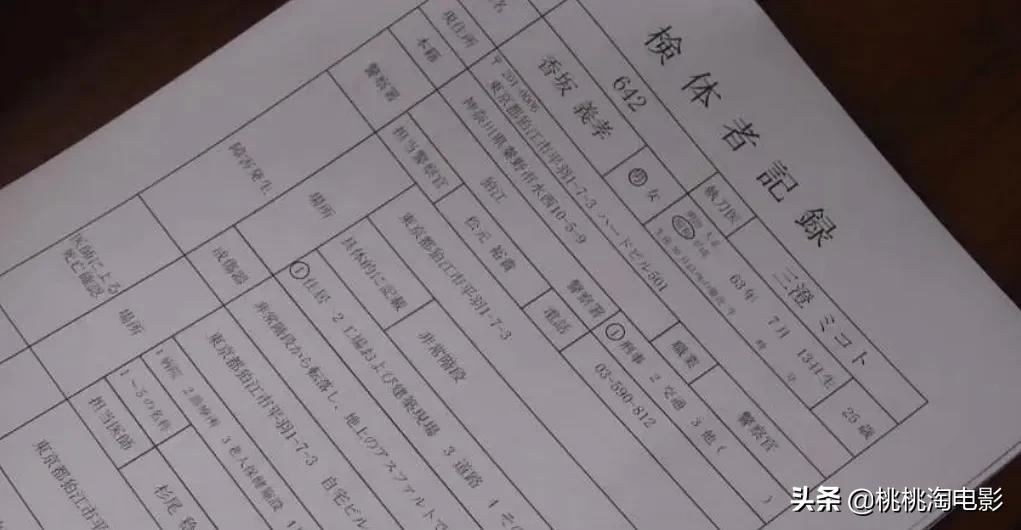 検体者記録
642
執刀医
三澄 ミコト
名
香坂 義孝
男 女
明治 大正
昭和 平成
63年 7月 13日生
25歳
現住所
〒 201-0006
東京都狛江市平羽1-7-3 ハードビル501
職業
警察官
本籍
神奈川県秦野市水西10-5-9
警察署
狛江
警察署
1 刑事 2 交通 3 他 ( )
担当警察官
松元 裕貴
電話
03-590-812
障害発生
場所
東京都狛江市平羽1-7-3
具体的に記載
非常階段
1 住居 2 工場および建築現場 3 道路 4 その
成傷器
非常階段から転落し、地上のアスファルトで
医師による
死亡確認
場所
東京都狛江市平羽1-7-3 自宅ビル
1 病院 2 診療所 3 老人保健施設
1~3の名称
担当医師
杉尾
東京都狛江市平羽1-7-
头条 @桃桃淘电影